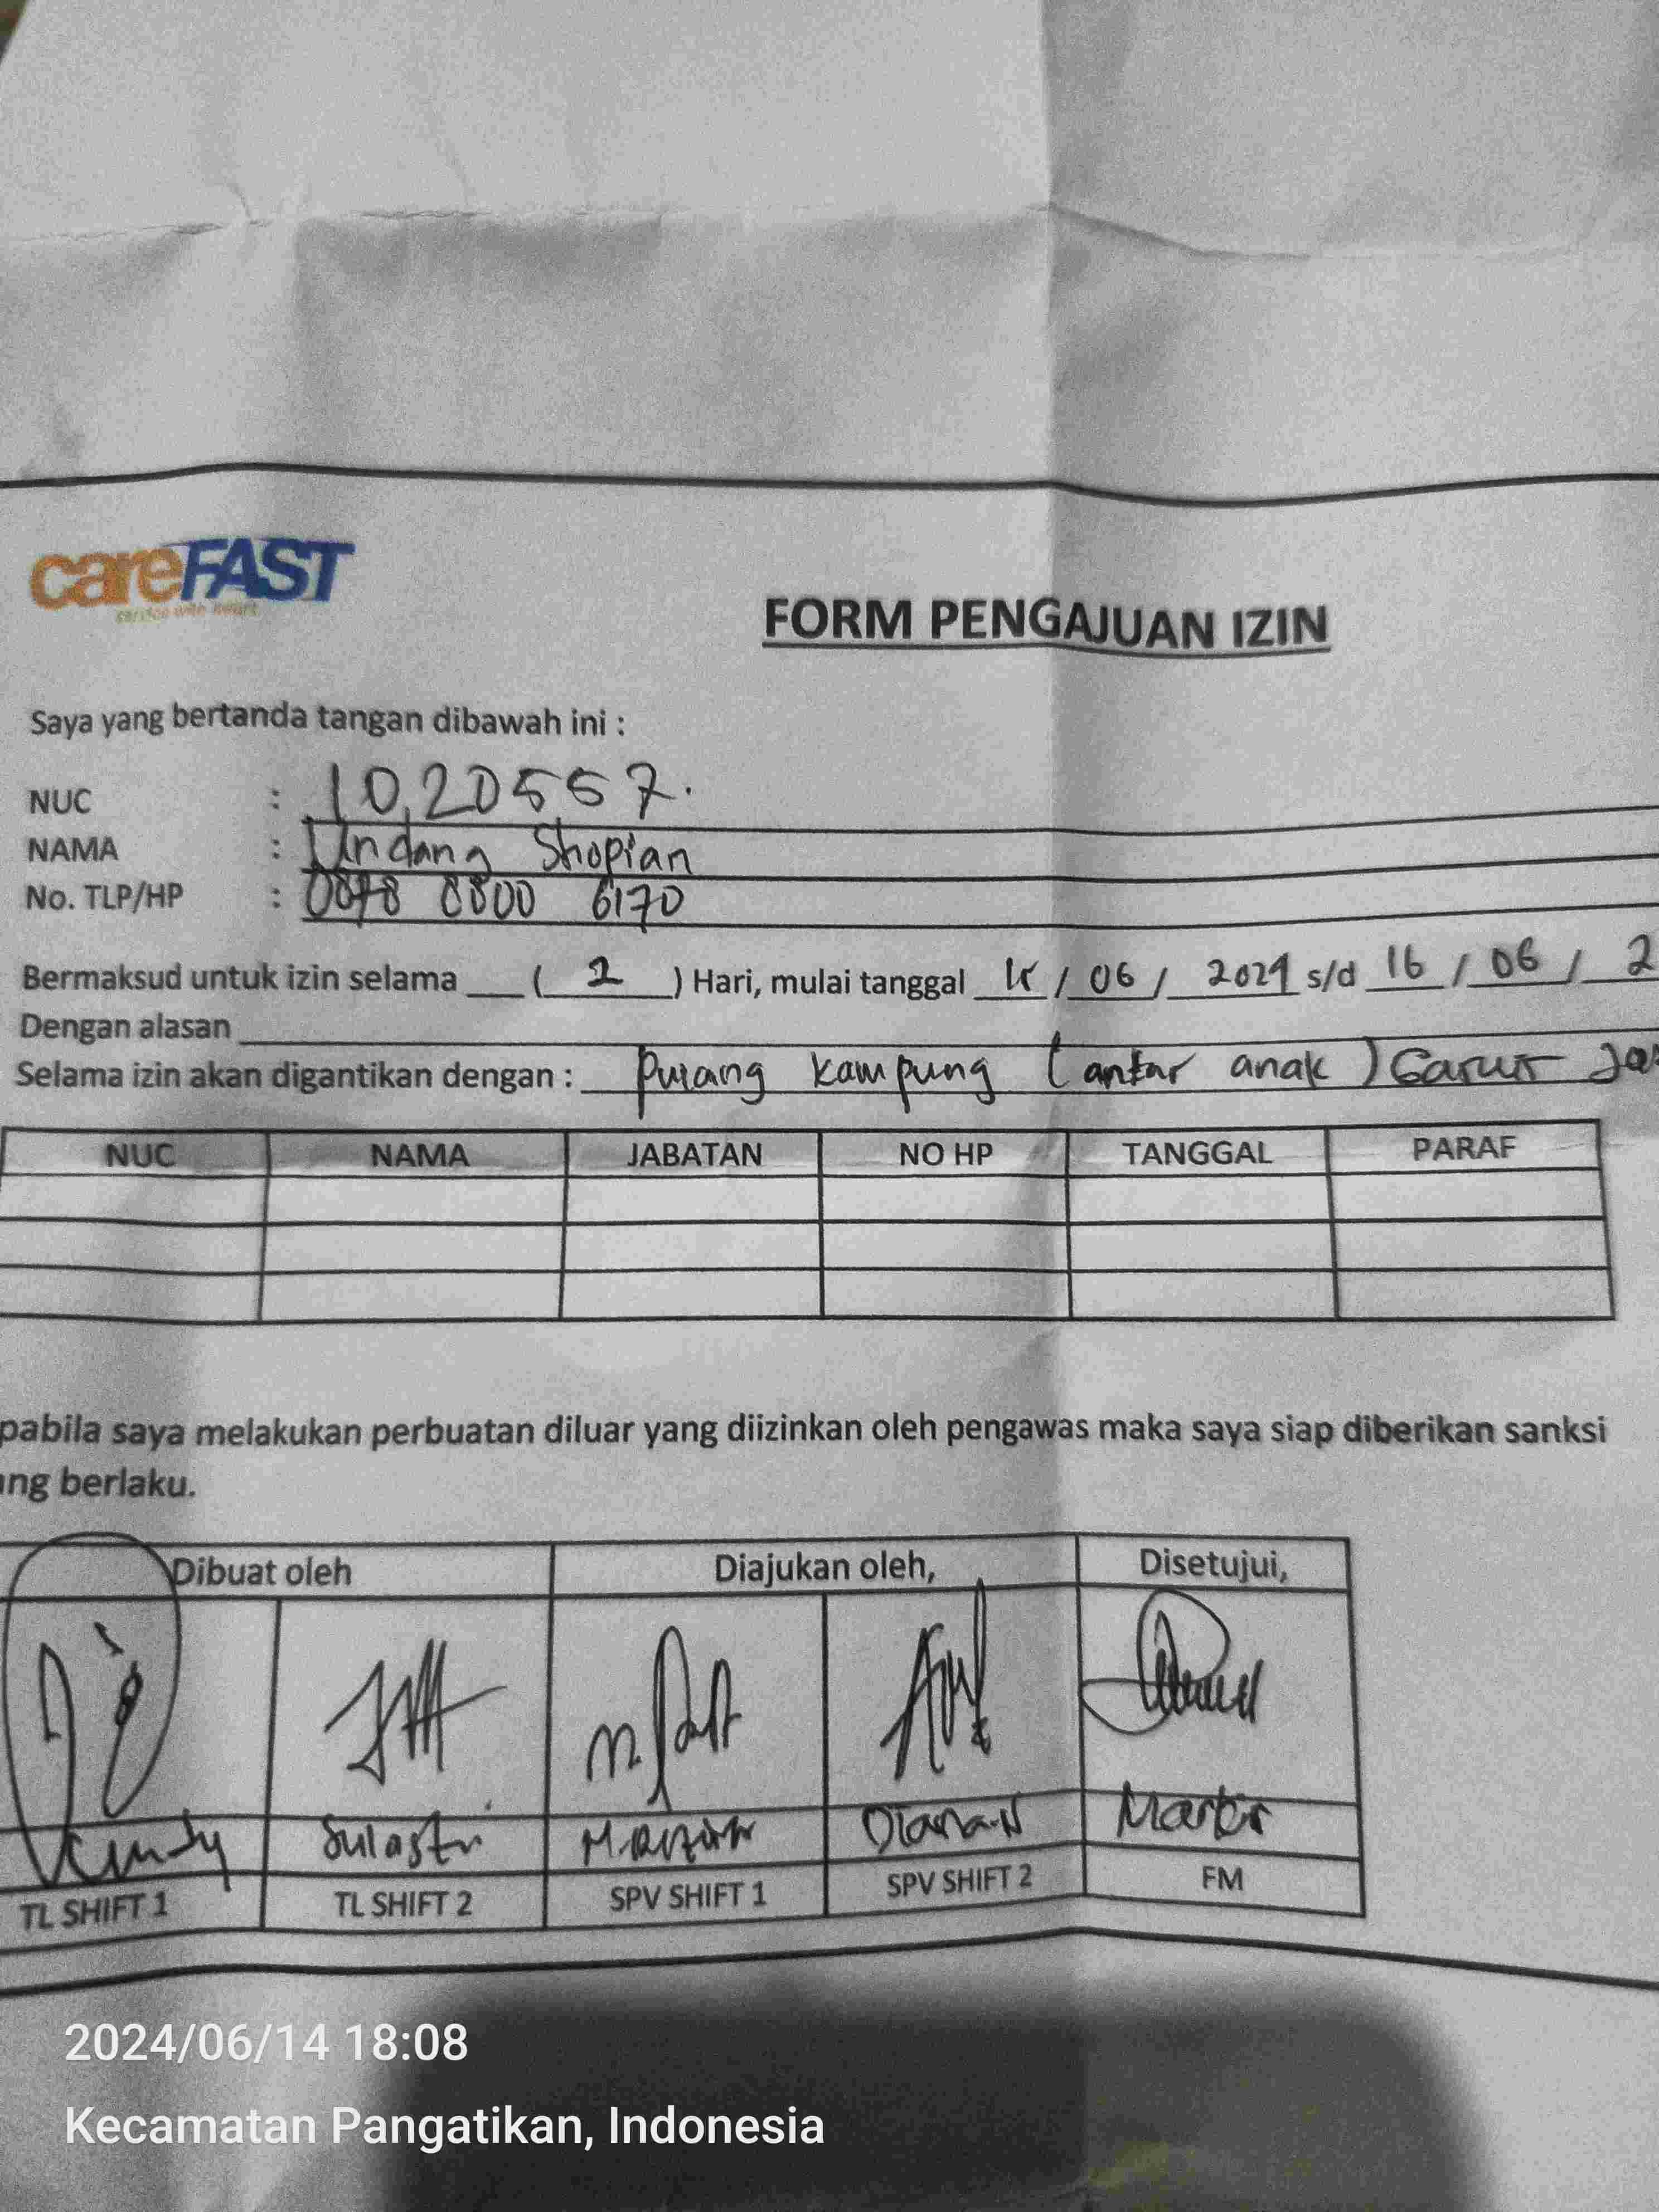 careFAST
service with heart
FORM PENGAJUAN IZIN
Saya yang bertanda tangan dibawah ini :
NUC : 10,20557.
NAMA : Undang Shopian
No. TLP/HP : 0878 8800 6170
Bermaksud untuk izin selama ___ ( 2 ) Hari, mulai tanggal 15 / 06 / 2024 s/d 16 / 06 / 2
Dengan alasan
Selama izin akan digantikan dengan : Pulang kampung (antar anak) Garut
NUC NAMA JABATAN NO HP TANGGAL PARAF
pabila saya melakukan perbuatan diluar yang diizinkan oleh pengawas maka saya siap diberikan sanksi
ang berlaku.
Dibuat oleh Diajukan oleh, Disetujui,
Sulastri Diana.N
TL SHIFT 1 TL SHIFT 2 SPV SHIFT 1 SPV SHIFT 2 FM
2024/06/14 18:08
Kecamatan Pangatikan, Indonesia